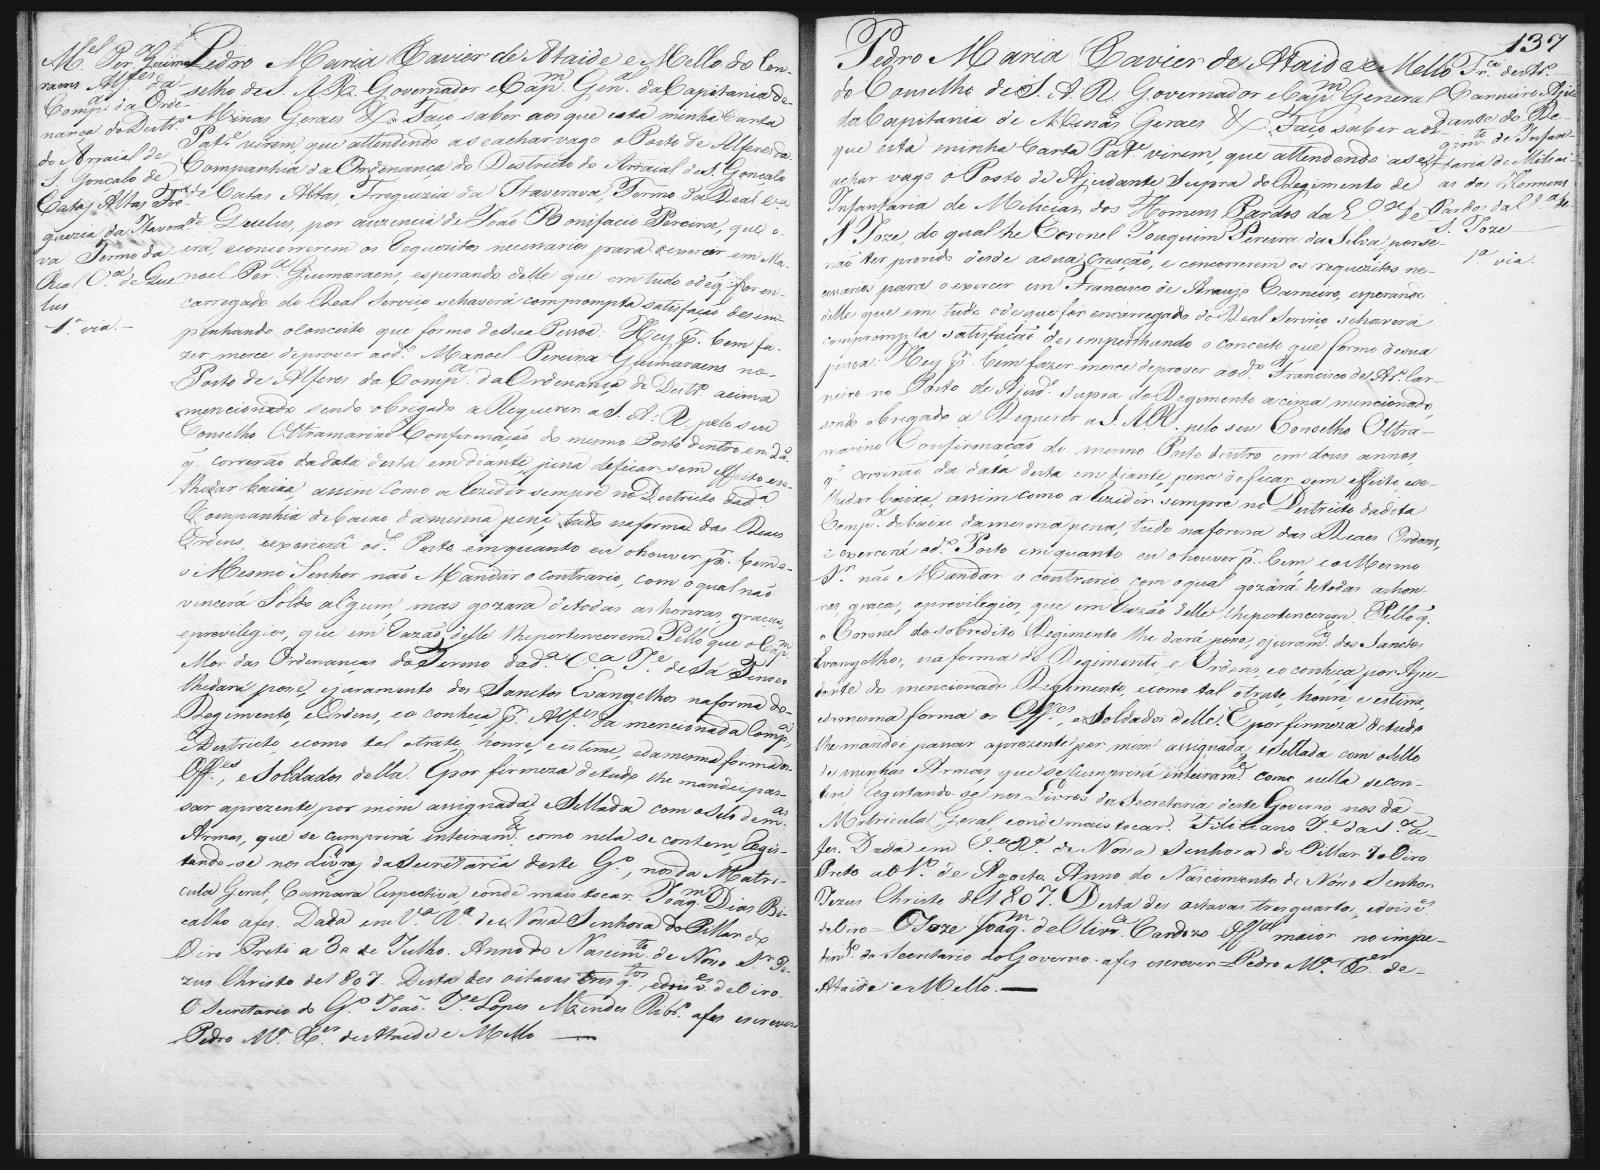 M.el Per.a Guima
raens Alf.es da
Comp.a da Orde-
nança do Destr.o
do Arraial de
S. Gonçalo de
Catas Altas Fre
guezia da Itavera
va Termo da
Real V.a de Que
lus
1.a via. —
Pedro Maria Xavier de Ataide e Mello do Con-
selho de S. A. R. Governador e Cap.m Gen.al da Capitania de
Minas Geraes &.a Faço saber aos que esta minha Carta
Pat.e virem, que attendendo a se achar vago o Posto de Alferes da
Companhia da Ordenança do Destricto do Arraial de S. Gonçalo
de Catas Altas, Freguezia da Itaverava, Termo da Real V.a
de Queulus, por auzencia de João Bonifacio Pereira, que o
era, e concorrerem os requezitos necessarios para o exercer em Ma-
noel Per.a Guimaraens, esperando delle que em tudo o de q. for en-
carregado do Real Serviço se haverá com prompta satisfação desem-
penhando o conceito que formo de sua Pessoa: Hey p.r bem fa-
zer merce de prover ao d.o Manoel Pereira Guimaraens no
Posto de Alferes da Comp.a da Ordenança do Destr.o acima
mencionado sendo obrigado a Requerer a S. A. R. pelo seu
Conselho Ultramarino Confirmação do mesmo Posto dentro em 2 a.
q. correrão da data desta em diante, pena de ficar sem effeito e se
lhe dar baixa assim como a rezidir sempre no Destricto da d.a
Companhia debaixo da mesma pena, tudo na forma das Reaes
Ordens, e exercerá o d.o Posto emquanto eu o houver p.r bem e
o Mesmo Senhor não Mandar o contrario, com o qual não
vencerá Soldo algum, mas gozará de todas as honras, graças,
e previlegios, que em razão delle lhe pertencerem. Pello que o Cap.m
Mor das Ordenanças do Termo da d.a V.a J.e de Sá Tinoco
lhe dará posse, e juramento dos Sanctos Evangelhos na forma do
Regimento, e Ordens, e o conheça p.r Alf.es da mencionada Comp.a,
e Destricto, e como tal o trate, honre, e estime, e da mesma forma os
Off.es, e Soldados della. E por firmeza de tudo lhe mandei pas-
sar a prezente, por mim assignada, e Sellada com o Selo de m.as
Armas, que se cumprirá inteiram.e como nela se contem, regis-
tando-se nos Livros da Secretaria deste G.o, nos da Matri-
cula Geral, Camara respectiva e onde mais tocar. Joaq.m Dias Bi-
calho a fes. Dada em V.a R.a de Nossa Senhora do Pillar do
Oiro Preto a 30 de Julho. Anno do Nascim.to de Nosso S.r Je-
zus Christo de 1807. Desta des oitavas tres q.tos, e dois v.es de Oiro.
O Secretario do G.o João J.e Lopes Mendes Rib.o a fes escrever
Pedro M.a X.er de Ataide e Mello —
137
Pedro Maria Xavier de Ataide e Mello
do Conselho de S. A. R. Governador e Cap.m General
da Capitania de Minas Geraes &.a Faço saber aos
que esta minha Carta Pat.e virem, que attendendo a se
achar vago o Posto de Ajudante Supra do Regimento de
Infantaria de Milicias dos Homens Pardos da C.ca de
S. Joze, do qual he Coronel Joaquim Pereira da Silva, por se
não ter provido desde a sua Creação, e concorrerem os requezitos ne-
cessarios para o exercer em Francisco de Araujo Carneiro, esperando
delle que em tudo o de que for encarregado do Real Serviço se haverá
com prompta satisfação desempenhando o conceito que formo de sua
pessoa: Hey p.r bem fazer merce de prover ao d.o Francisco de Ar.o Car-
neiro no Posto de Ajud.e Supra do Regimento acima mencionado,
sendo obrigado a Requerer a S. A. R. pelo seu Conselho Ultra-
marino Confirmação do mesmo Posto dentro em dous annos,
q. correrão da data desta em diante, pena de ficar sem effeito, e se
lhe dar baixa, assim como a rezidir sempre no Destricto da dita
Comp.a debaixo da mesma pena, tudo na forma das Reaes Ordens,
e exercerá o d.o Posto emquanto eu o houver p.r bem e o Mesmo
S.r não Mandar o contrario, com o qual gozará de todas as hon-
ras, graças, e previlegios, que em razão delle lhe pertencerem. Pello q.
o Coronel do sobredito Regimento lhe dará posse, e juram.to dos Sanctos
Evangelhos, na forma do Regimento, e Ordens, e o conheça por Aju-
dante do mencionado Regimento, e como tal o trate, honre, e estime,
e da mesma forma os Off.es, e Soldados delle. E por firmeza de tudo
lhe mandei passar a prezente, por mim assignada, e Sellada com o Sello
de minhas Armas, que se cumprirá inteiram.e como nella se con-
tem, registando-se nos Livros da Secretaria deste Governo, nos da
Matricula Geral, e onde mais tocar. Feliciano J.e da S.a a
fes. Dada em V.a R.a de Nossa Senhora do Pillar do Oiro
Preto a de Agosto, Anno do Nascimento de Nosso Senhor
Jezus Christo de 1807. Desta des oitavas tres quartos, e dois v.es
de Oiro = O Joze Joaq.m de Oliv.ra Cardozo Off.al maior no impe-
dim.to do Secretario do Governo a fes escrever = Pedro M.a X.er de
Ataide e Mello. —
Fr.co de Ar.o
Carneiro Aju
dante do Re-
gim.to de Infan-
taria de Milici
as dos Homens
Pardos da C.ca de
S. Joze —
1.a via.